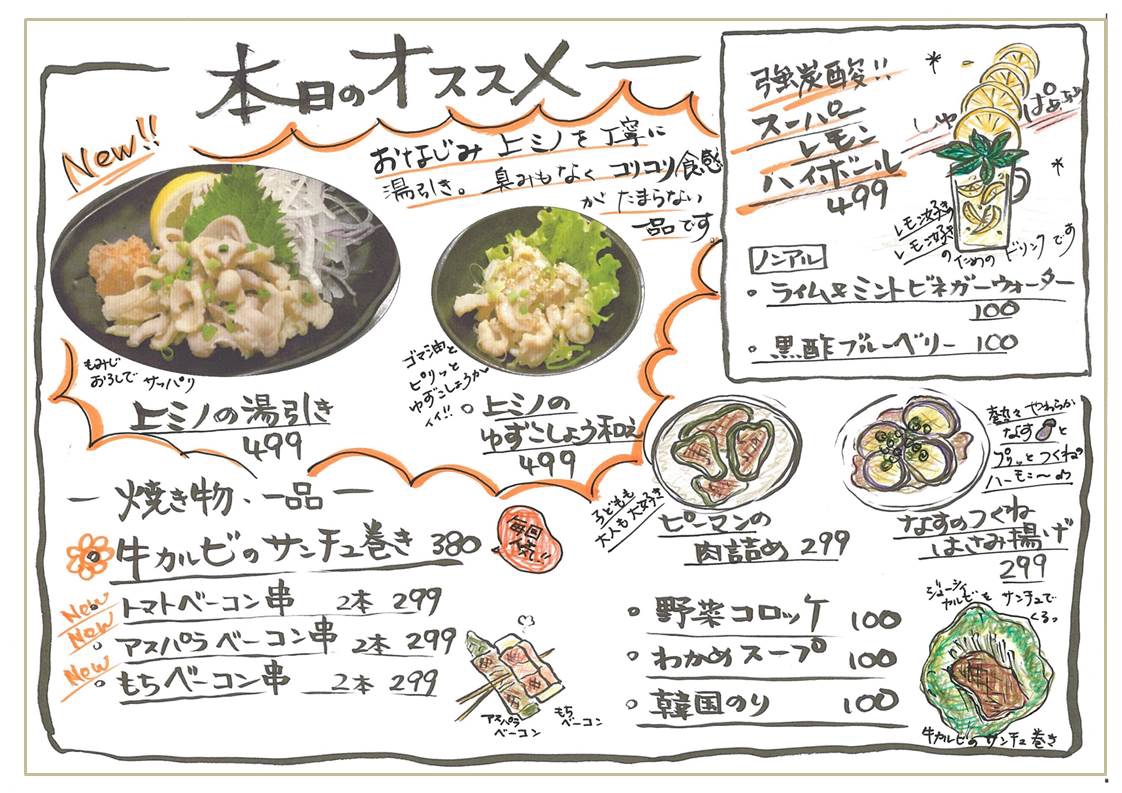 本日のオススメ
New!!
おなじみ 上ミノを丁寧に
湯引き。臭みもなく コリコリ食感
が たまらない
一品です
もみじ
おろしで サッパリ
上ミノの湯引き
499
ゴマ油と
ピリッと
ゆずこしょうが
イイ!!
上ミノの
ゆずこしょう和え
499
強炭酸!!
スーパー
レモン
ハイボール
499
しゅ ぱぁぁぁ
レモン好きの
レモン好き
のための ドリンクです
ノンアル
ライム&ミントビネガーウォーター
100
黒酢ブルーベリー 100
焼き物・一品
牛カルビのサンチュ巻き 380
毎回
New トマトベーコン串 2本 299
New アスパラベーコン串 2本 299
New もちベーコン串 2本 299
アスパラ
ベーコン
もち
ベーコン
子どもも
大人も大好き
ピーマンの
肉詰め 299
熱々やわらか
なすと
プリッとつくね
ハーモニ〜
なすのつくね
はさみ揚げ
299
野菜コロッケ 100
わかめスープ 100
韓国のり 100
ジューシィ
カルビを サンチュで
くるっ
牛カルビのサンチュ巻き